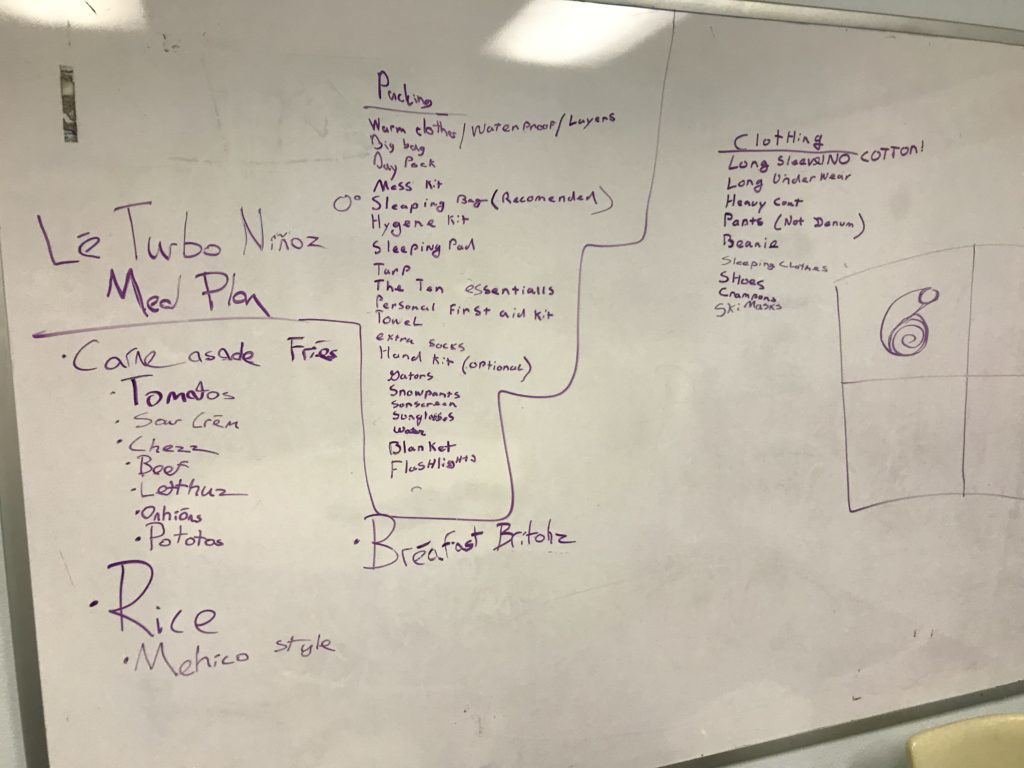 Lē Turbo Niñoz
Meel Plan
• Carne asade Fries
• Tomatos
• Sour Crēm
• Chezz
• Beef
• Letthuz
• Onhions
• Pototos
• Rice
• Mehico style
Packing
Warm clothes/Waterproof/Layers
Big bag
Day Pack
Mess Kit
0° Sleaping Bag (Recomended)
Hygene Kit
Sleeping Pad
Tarp
The Ten essentialls
Personal First aid Kit
Towel
extra socks
Hand Kit (optional)
Gators
Snowpants
Sonscreen
Sunglasses
Water
Blanket
Flashlights
• Brēafast Britohz
Clothing
Long Sleeves/NO COTTON!
Long Underwear
Heavy Coat
Pants (Not Denum)
Beanie
Sleeping Clothes
Shoes
Crampons
Ski Masks